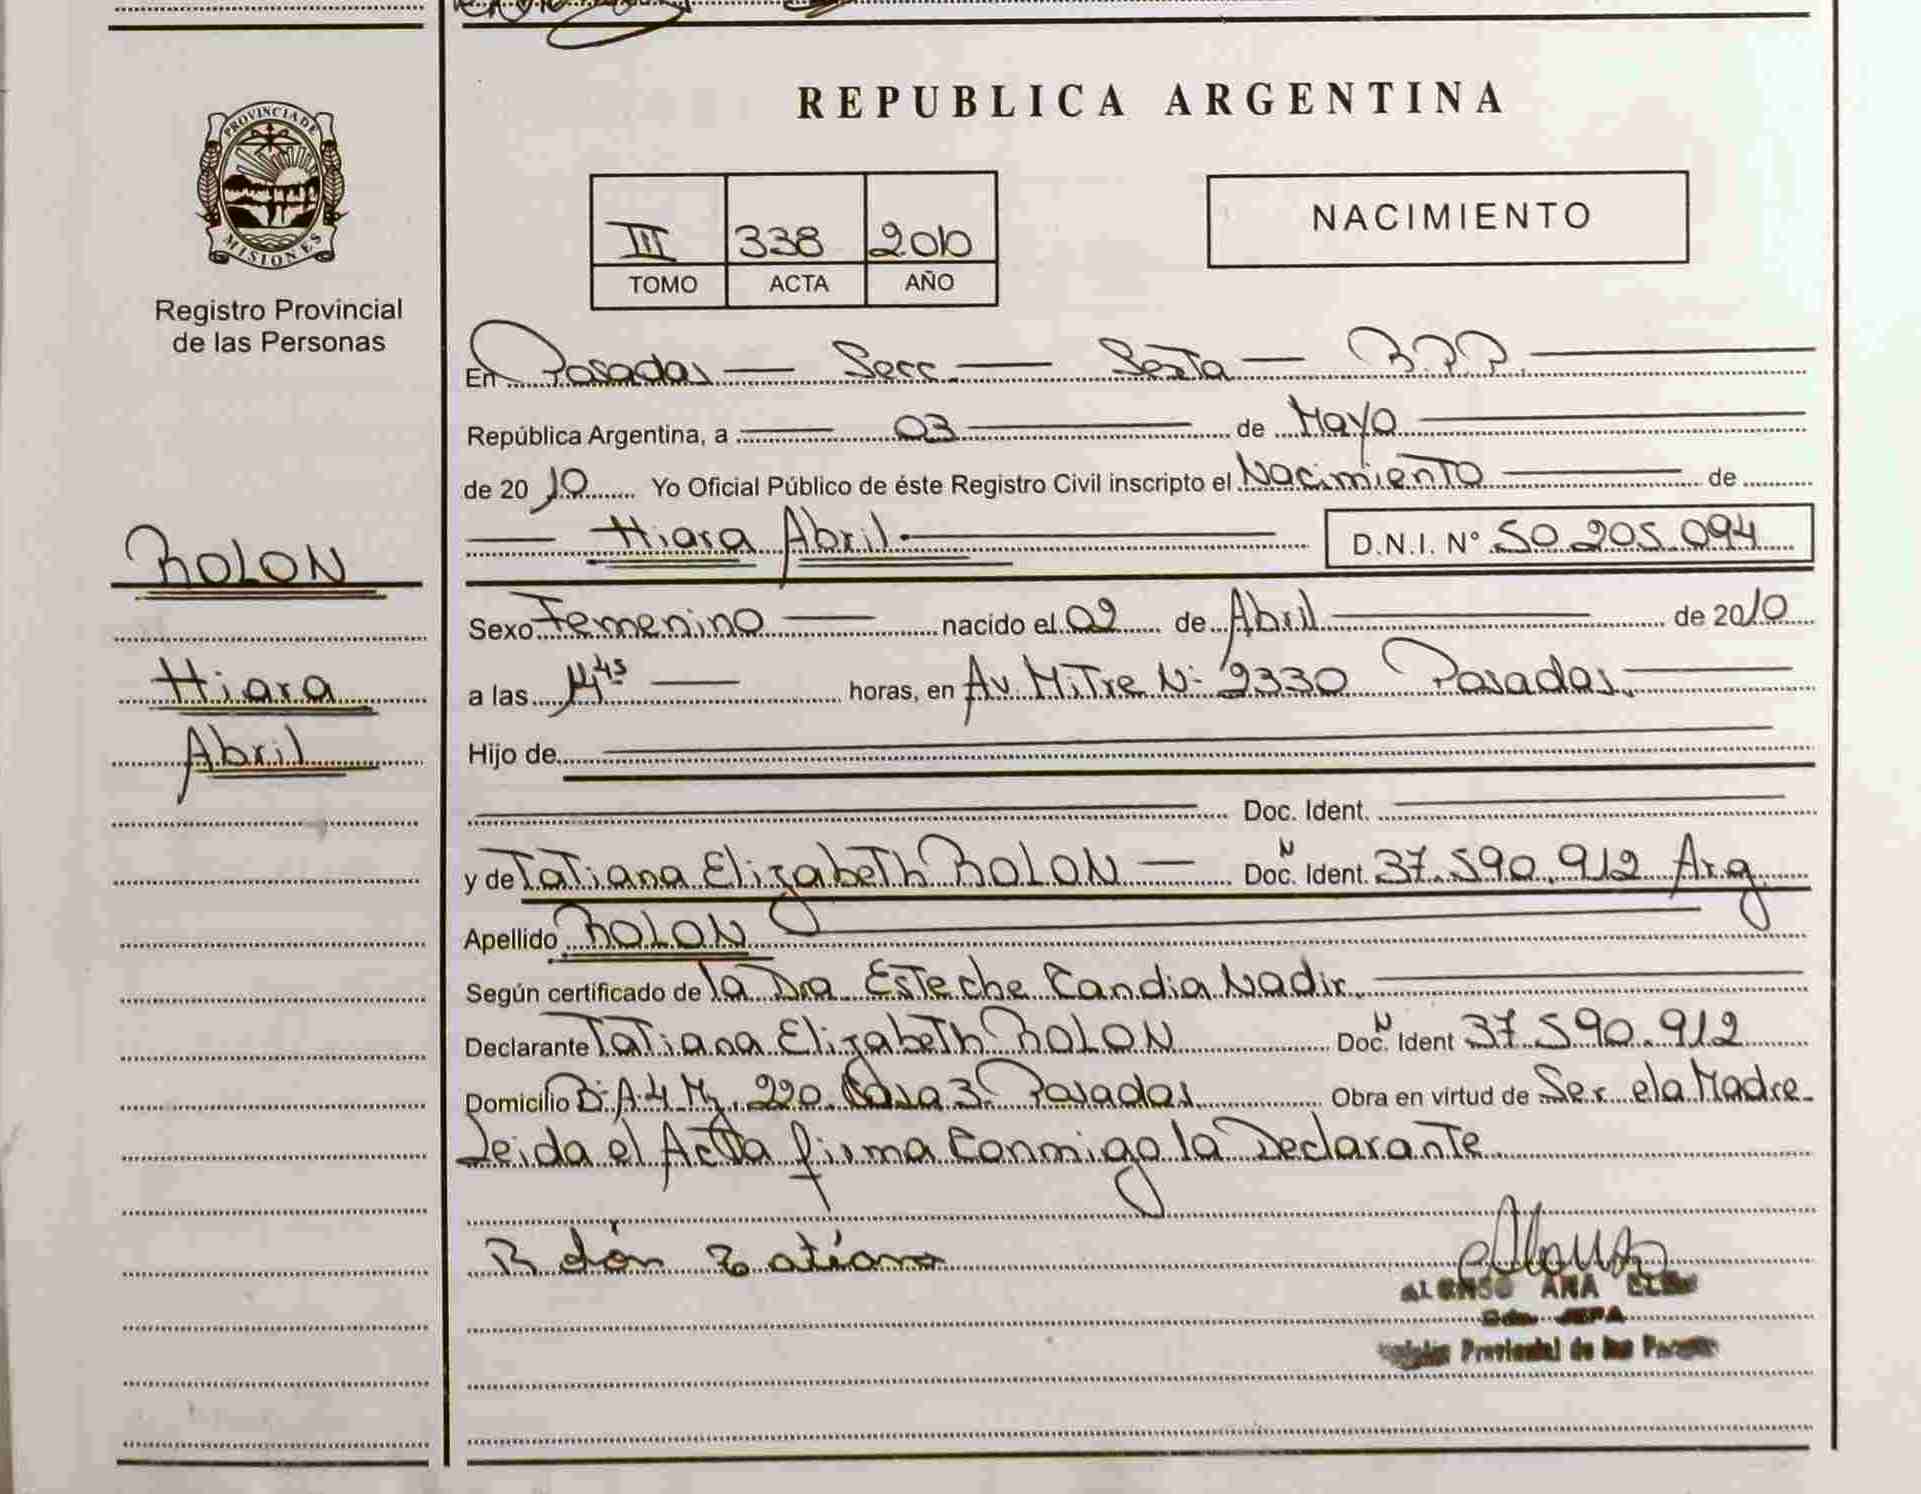 PROVINCIA DE
MISIONES
Registro Provincial
de las Personas
ROLON
Hiara
Abril
REPUBLICA ARGENTINA
III 338 2010
TOMO ACTA AÑO
NACIMIENTO
En Posadas Secc. Sexta
República Argentina, a 03 de Mayo
de 2010 Yo Oficial Público de éste Registro Civil inscripto el Nacimiento de
Hiara Abril. D.N.I. N° 50.205.094
Sexo Femenino nacido el 09 de Abril de 2010
a las horas, en Av. Mitre N: 2330 Posadas.
Hijo de
Doc. Ident.
y de Tatiana Elizabeth ROLON Doc. N Ident. 37.590.912 Arg
Apellido ROLON
Según certificado de la Dra Esteche Candia Nadir.
Declarante Tatiana Elizabeth ROLON Doc. N Ident 37.590.912
Domicilio B: A-4 Mz. 220 Casa 3. Posadas Obra en virtud de Ser ela Madre.
Leida el Acta firma Conmigo la Declarante
Rolón Tatiana
ALONSO ANA
Provincial de las